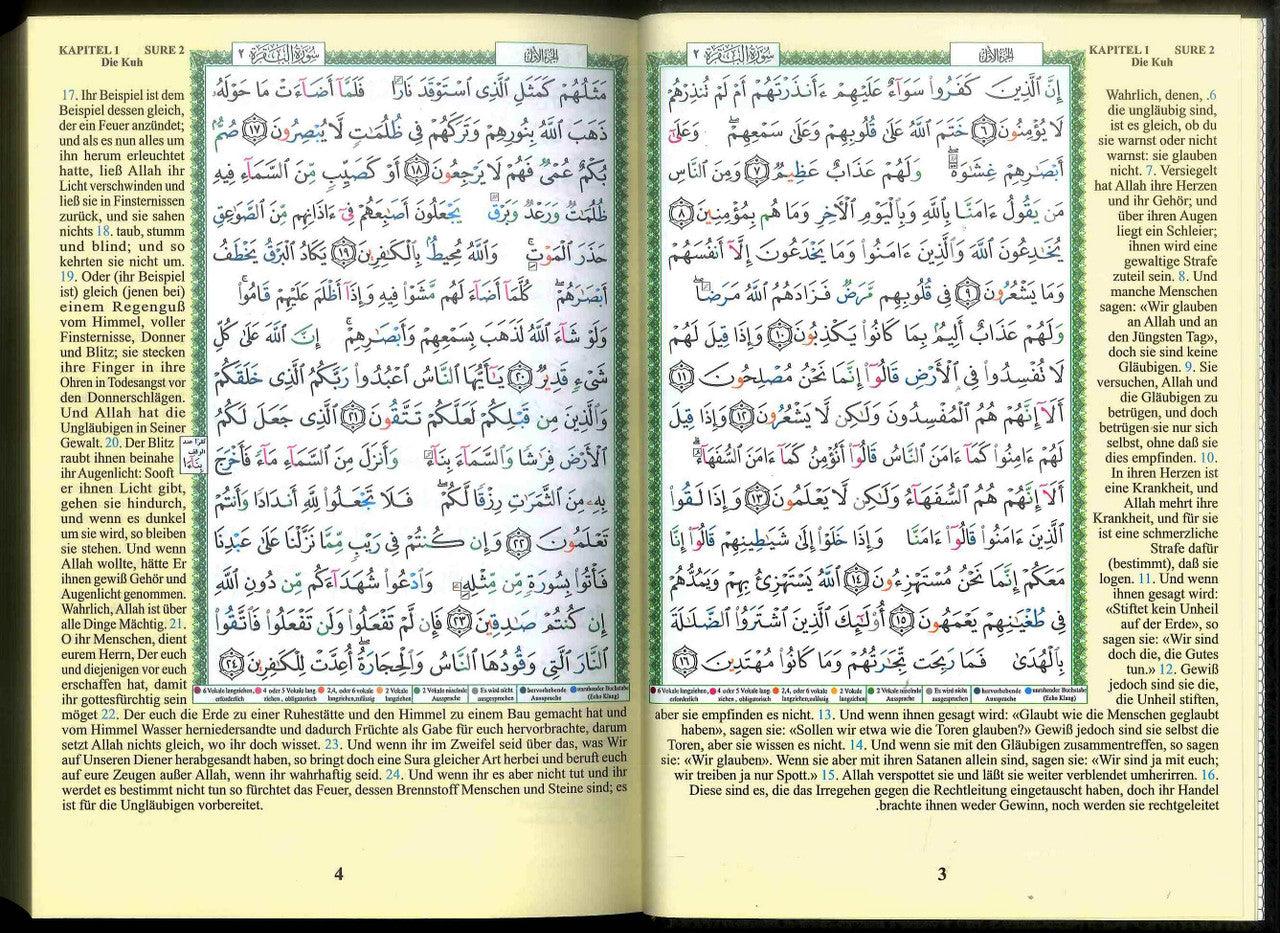 KAPITEL 1 SURE 2
Die Kuh
سورة البقرة ٢
الجزء الأول
إِنَّ الَّذِينَ كَفَرُوا سَوَاءٌ عَلَيْهِمْ ءَأَنذَرْتَهُمْ أَمْ لَمْ تُنذِرْهُمْ
لَا يُؤْمِنُونَ ﴿٦﴾ خَتَمَ اللَّهُ عَلَىٰ قُلُوبِهِمْ وَعَلَىٰ سَمْعِهِمْ ۖ وَعَلَىٰ
أَبْصَارِهِمْ غِشَاوَةٌ ۖ وَلَهُمْ عَذَابٌ عَظِيمٌ ﴿٧﴾ وَمِنَ النَّاسِ
مَن يَقُولُ ءَامَنَّا بِاللَّهِ وَبِالْيَوْمِ الْآخِرِ وَمَا هُم بِمُؤْمِنِينَ ﴿٨﴾
يُخَادِعُونَ اللَّهَ وَالَّذِينَ ءَامَنُوا وَمَا يَخْدَعُونَ إِلَّا أَنفُسَهُمْ
وَمَا يَشْعُرُونَ ﴿٩﴾ فِي قُلُوبِهِم مَّرَضٌ فَزَادَهُمُ اللَّهُ مَرَضًا ۖ
وَلَهُمْ عَذَابٌ أَلِيمٌ بِمَا كَانُوا يَكْذِبُونَ ﴿١٠﴾ وَإِذَا قِيلَ لَهُمْ
لَا تُفْسِدُوا فِي الْأَرْضِ قَالُوا إِنَّمَا نَحْنُ مُصْلِحُونَ ﴿١١﴾
أَلَا إِنَّهُمْ هُمُ الْمُفْسِدُونَ وَلَٰكِن لَّا يَشْعُرُونَ ﴿١٢﴾ وَإِذَا قِيلَ
لَهُمْ ءَامِنُوا كَمَا ءَامَنَ النَّاسُ قَالُوا أَنُؤْمِنُ كَمَا ءَامَنَ السُّفَهَاءُ ۗ
أَلَا إِنَّهُمْ هُمُ السُّفَهَاءُ وَلَٰكِن لَّا يَعْلَمُونَ ﴿١٣﴾ وَإِذَا لَقُوا
الَّذِينَ ءَامَنُوا قَالُوا ءَامَنَّا وَإِذَا خَلَوْا إِلَىٰ شَيَاطِينِهِمْ قَالُوا إِنَّا
مَعَكُمْ إِنَّمَا نَحْنُ مُسْتَهْزِءُونَ ﴿١٤﴾ اللَّهُ يَسْتَهْزِئُ بِهِمْ وَيَمُدُّهُمْ
فِي طُغْيَانِهِمْ يَعْمَهُونَ ﴿١٥﴾ أُولَٰئِكَ الَّذِينَ اشْتَرَوُا الضَّلَالَةَ
بِالْهُدَىٰ فَمَا رَبِحَت تِّجَارَتُهُمْ وَمَا كَانُوا مُهْتَدِينَ ﴿١٦﴾
Wahrlich, denen, .6
die ungläubig sind,
ist es gleich, ob du
sie warnst oder nicht
warnst: sie glauben
nicht. 7. Versiegelt
hat Allah ihre Herzen
und ihr Gehör; und
über ihren Augen
liegt ein Schleier;
ihnen wird eine
gewaltige Strafe
zuteil sein. 8. Und
manche Menschen
sagen: «Wir glauben
an Allah und an
den Jüngsten Tag»,
doch sie sind keine
Gläubigen. 9. Sie
versuchen, Allah und
die Gläubigen zu
betrügen, und doch
betrügen sie nur sich
selbst, ohne daß sie
dies empfinden. 10.
In ihren Herzen ist
eine Krankheit, und
Allah mehrt ihre
Krankheit, und für sie
ist eine schmerzliche
Strafe dafür
(bestimmt), daß sie
logen. 11. Und wenn
ihnen gesagt wird:
«Stiftet kein Unheil
auf der Erde», so
sagen sie: «Wir sind
doch die, die Gutes
tun.» 12. Gewiß
jedoch sind sie die,
die Unheil stiften,
aber sie empfinden es nicht. 13. Und wenn ihnen gesagt wird: «Glaubt wie die Menschen geglaubt
haben», sagen sie: «Sollen wir etwa wie die Toren glauben?» Gewiß jedoch sind sie selbst die
Toren, aber sie wissen es nicht. 14. Und wenn sie mit den Gläubigen zusammentreffen, so sagen
sie: «Wir glauben». Wenn sie aber mit ihren Satanen allein sind, sagen sie: «Wir sind ja mit euch;
wir treiben ja nur Spott.» 15. Allah verspottet sie und läßt sie weiter verblendet umherirren. 16.
Diese sind es, die das Irregehen gegen die Rechtleitung eingetauscht haben, doch ihr Handel
.brachte ihnen weder Gewinn, noch werden sie rechtgeleitet
3
KAPITEL 1 SURE 2
Die Kuh
سورة البقرة ٢
الجزء الأول
مَثَلُهُمْ كَمَثَلِ الَّذِي اسْتَوْقَدَ نَارًا فَلَمَّا أَضَاءَتْ مَا حَوْلَهُ
ذَهَبَ اللَّهُ بِنُورِهِمْ وَتَرَكَهُمْ فِي ظُلُمَاتٍ لَّا يُبْصِرُونَ ﴿١٧﴾ صُمٌّ
بُكْمٌ عُمْيٌ فَهُمْ لَا يَرْجِعُونَ ﴿١٨﴾ أَوْ كَصَيِّبٍ مِّنَ السَّمَاءِ فِيهِ
ظُلُمَاتٌ وَرَعْدٌ وَبَرْقٌ يَجْعَلُونَ أَصَابِعَهُمْ فِي ءَاذَانِهِم مِّنَ الصَّوَاعِقِ
حَذَرَ الْمَوْتِ ۚ وَاللَّهُ مُحِيطٌ بِالْكَافِرِينَ ﴿١٩﴾ يَكَادُ الْبَرْقُ يَخْطَفُ
أَبْصَارَهُمْ ۖ كُلَّمَا أَضَاءَ لَهُم مَّشَوْا فِيهِ وَإِذَا أَظْلَمَ عَلَيْهِمْ قَامُوا ۚ
وَلَوْ شَاءَ اللَّهُ لَذَهَبَ بِسَمْعِهِمْ وَأَبْصَارِهِمْ ۚ إِنَّ اللَّهَ عَلَىٰ كُلِّ
شَيْءٍ قَدِيرٌ ﴿٢٠﴾ يَا أَيُّهَا النَّاسُ اعْبُدُوا رَبَّكُمُ الَّذِي خَلَقَكُمْ
وَالَّذِينَ مِن قَبْلِكُمْ لَعَلَّكُمْ تَتَّقُونَ ﴿٢١﴾ الَّذِي جَعَلَ لَكُمُ
الْأَرْضَ فِرَاشًا وَالسَّمَاءَ بِنَاءً وَأَنزَلَ مِنَ السَّمَاءِ مَاءً فَأَخْرَجَ
بِهِ مِنَ الثَّمَرَاتِ رِزْقًا لَّكُمْ ۖ فَلَا تَجْعَلُوا لِلَّهِ أَندَادًا وَأَنتُمْ
تَعْلَمُونَ ﴿٢٢﴾ وَإِن كُنتُمْ فِي رَيْبٍ مِّمَّا نَزَّلْنَا عَلَىٰ عَبْدِنَا
فَأْتُوا بِسُورَةٍ مِّن مِّثْلِهِ وَادْعُوا شُهَدَاءَكُم مِّن دُونِ اللَّهِ
إِن كُنتُمْ صَادِقِينَ ﴿٢٣﴾ فَإِن لَّمْ تَفْعَلُوا وَلَن تَفْعَلُوا فَاتَّقُوا
النَّارَ الَّتِي وَقُودُهَا النَّاسُ وَالْحِجَارَةُ ۖ أُعِدَّتْ لِلْكَافِرِينَ ﴿٢٤﴾
17. Ihr Beispiel ist dem
Beispiel dessen gleich,
der ein Feuer anzündet;
und als es nun alles um
ihn herum erleuchtet
hatte, ließ Allah ihr
Licht verschwinden und
ließ sie in Finsternissen
zurück, und sie sahen
nichts 18. taub, stumm
und blind; und so
kehrten sie nicht um.
19. Oder (ihr Beispiel
ist) gleich (jenen bei)
einem Regenguß
vom Himmel, voller
Finsternisse, Donner
und Blitz; sie stecken
ihre Finger in ihre
Ohren in Todesangst vor
den Donnerschlägen.
Und Allah hat die
Ungläubigen in Seiner
Gewalt. 20. Der Blitz
raubt ihnen beinahe
ihr Augenlicht: Sooft
er ihnen Licht gibt,
gehen sie hindurch,
und wenn es dunkel
um sie wird, so bleiben
sie stehen. Und wenn
Allah wollte, hätte Er
ihnen gewiß Gehör und
Augenlicht genommen.
Wahrlich, Allah ist über
alle Dinge Mächtig. 21.
O ihr Menschen, dient
eurem Herrn, Der euch
und diejenigen vor euch
erschaffen hat, damit
ihr gottesfürchtig sein
möget 22. Der euch die Erde zu einer Ruhestätte und den Himmel zu einem Bau gemacht hat und
vom Himmel Wasser herniedersandte und dadurch Früchte als Gabe für euch hervorbrachte, darum
setzt Allah nichts gleich, wo ihr doch wisset. 23. Und wenn ihr im Zweifel seid über das, was Wir
auf Unseren Diener herabgesandt haben, so bringt doch eine Sura gleicher Art herbei und beruft euch
auf eure Zeugen außer Allah, wenn ihr wahrhaftig seid. 24. Und wenn ihr es aber nicht tut und ihr
werdet es bestimmt nicht tun so fürchtet das Feuer, dessen Brennstoff Menschen und Steine sind; es
ist für die Ungläubigen vorbereitet.
4